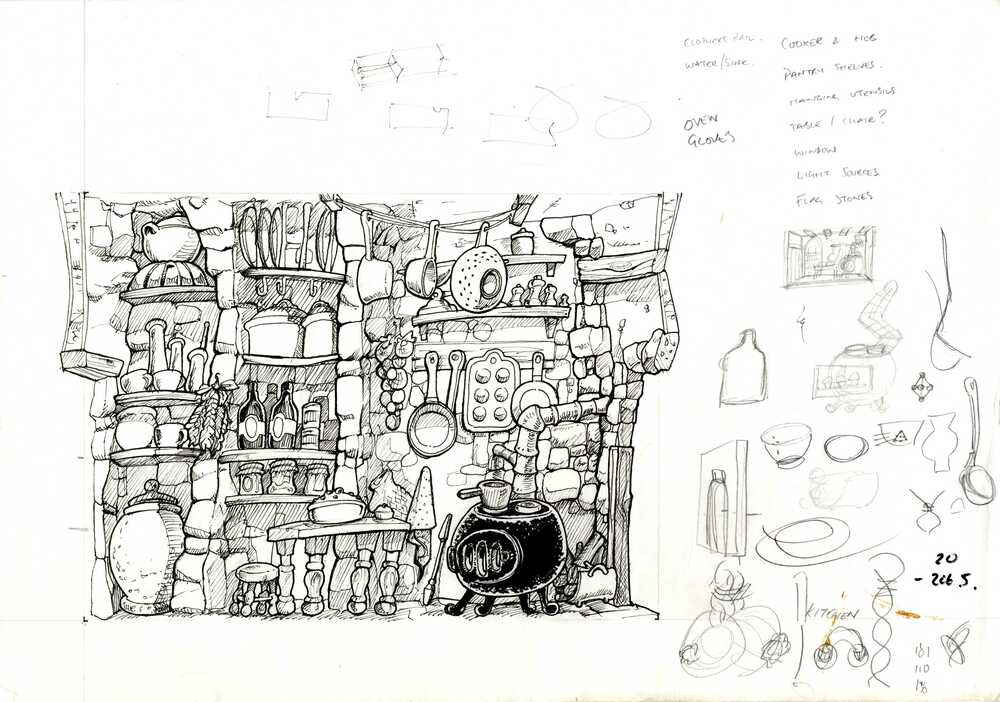 CLOTHES RAIL.
WATER/SINK.
OVEN
GLOVES
COOKER & HOB
PANTRY SHELVES.
HANGING UTENSILS
TABLE / CHAIR?
WINDOW
LIGHT SOURCES
FLAG STONES
20
KITCHEN
110